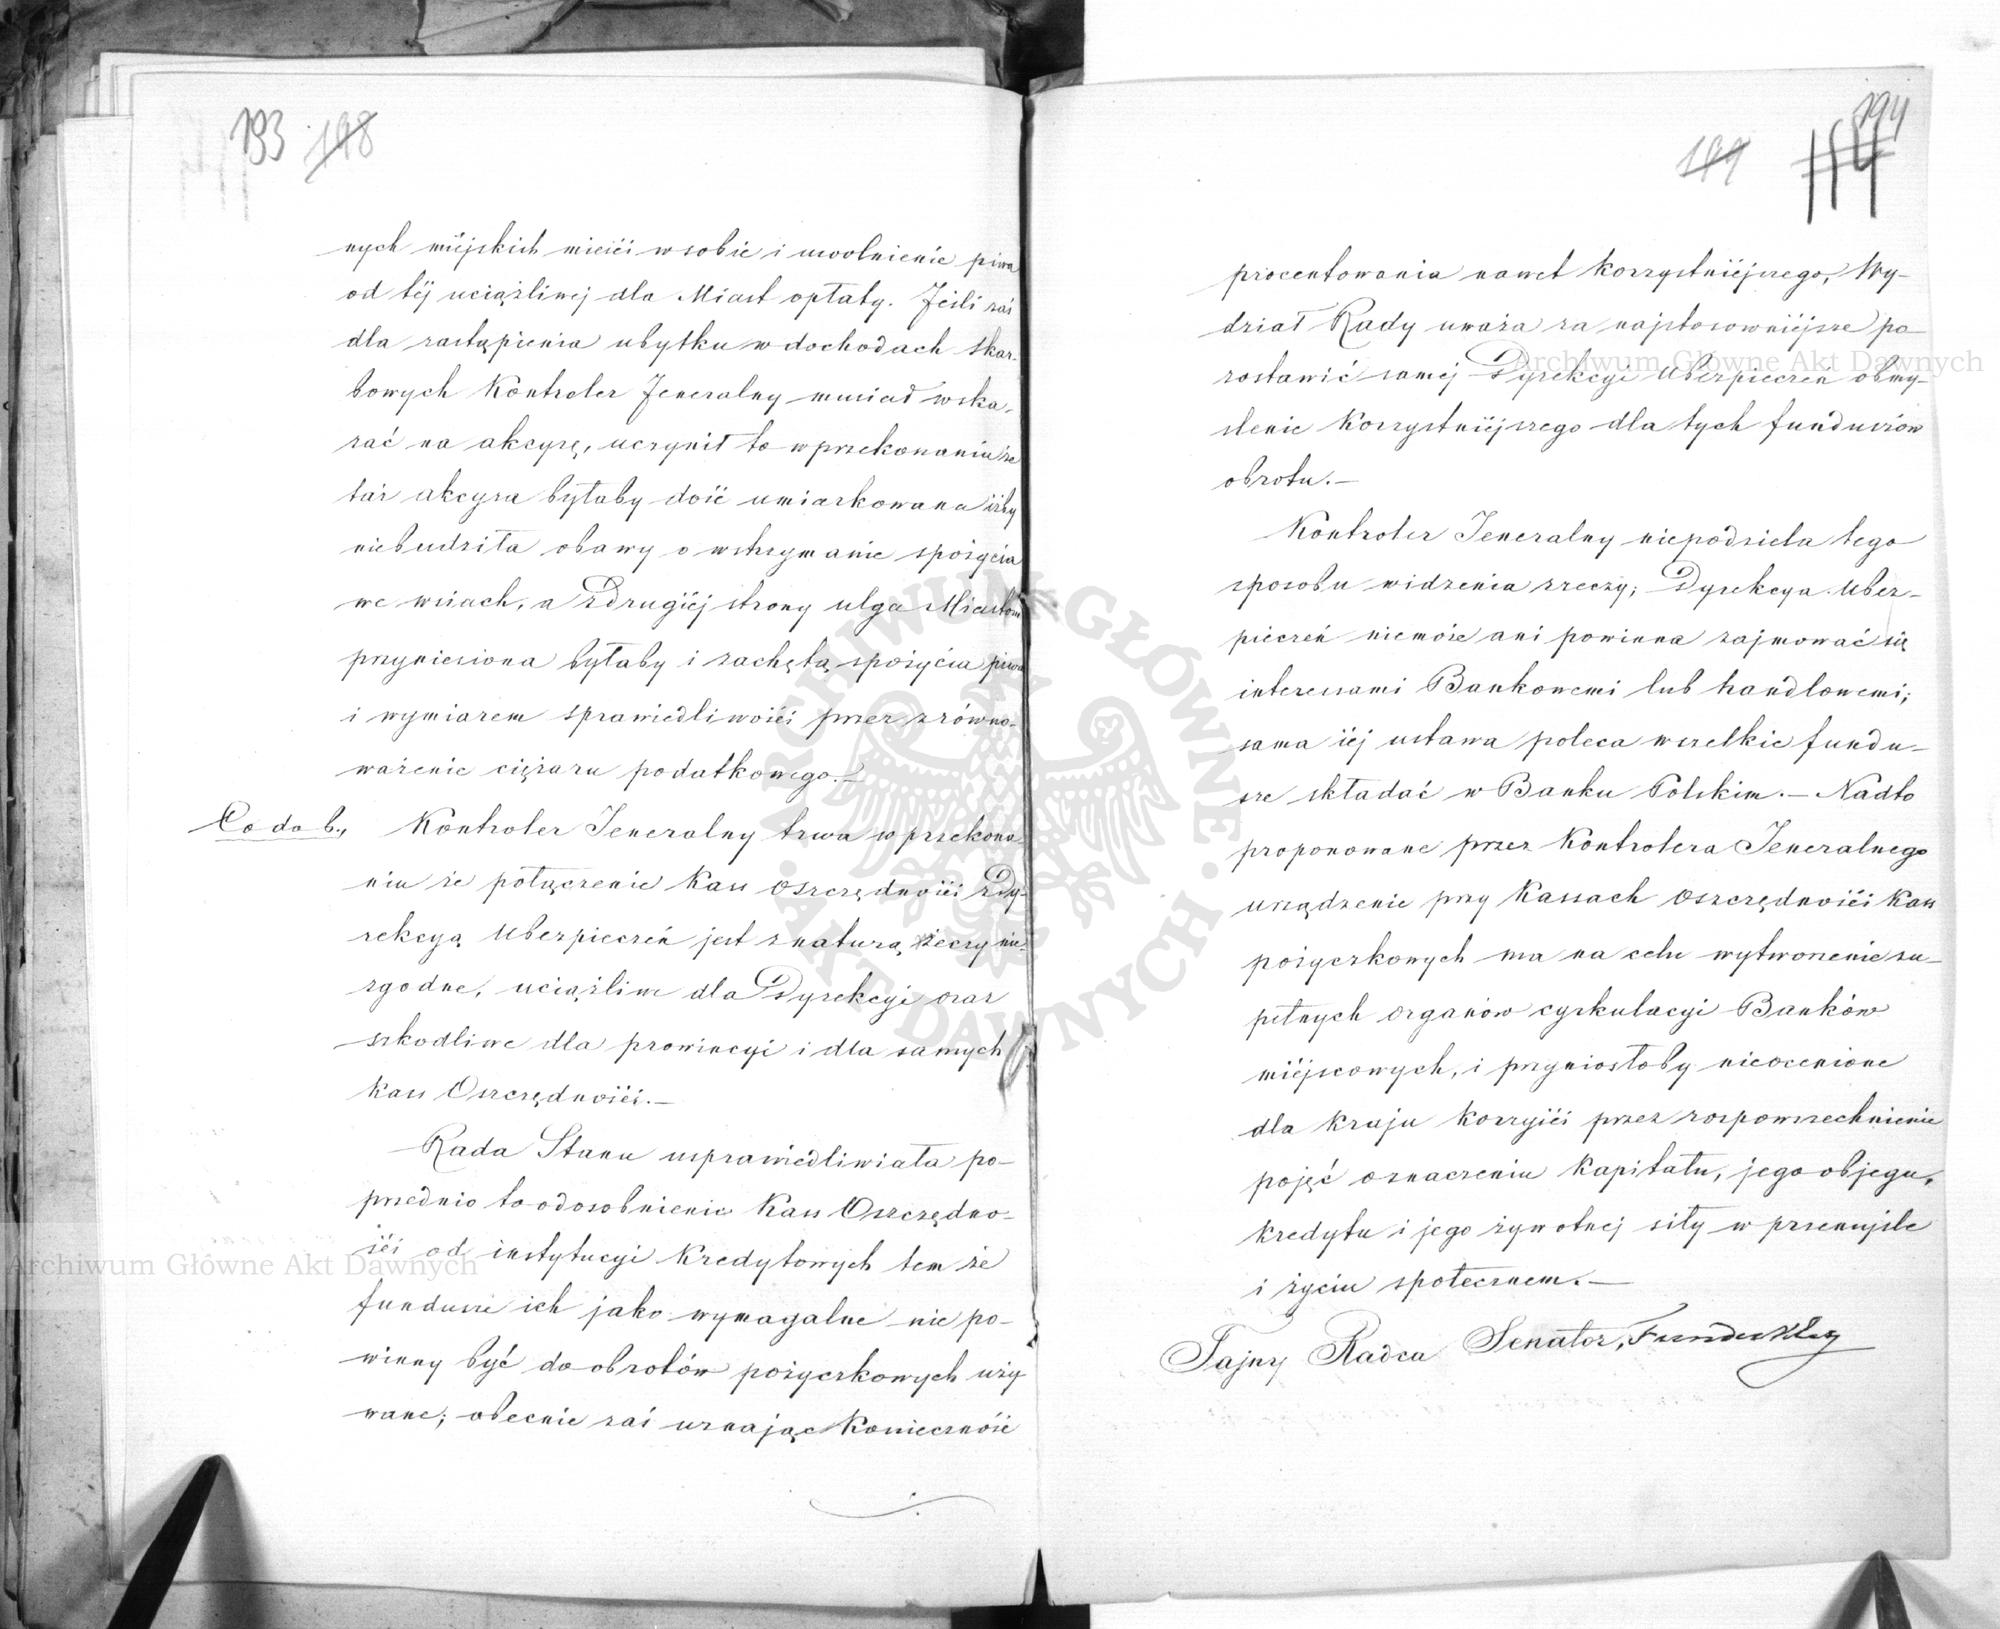 193 198
nych miéjskich mieści w sobie i uwolnienie piwa
od téj uciążliwej dla Miast opłaty. Jeśli zaś
dla zastąpienia ubytku w dochodach skar-
bowych Kontroler Jeneralny musiał wska-
zać na akcyzę, uczynił to w przekonaniu że
taż akcyza byłaby dość umiarkowana iżby
niebudziła obawy o wstrzymanie spożycia
we wsiach, a z drugiéj strony ulga Miastom
przyniesiona byłaby i zachętą spożycia piwa
i wymiarem sprawiedliwości przez zrówno-
ważenie ciężaru podatkowego.—
Co do b., Kontroler Jeneralny trwa w przekona-
niu że połączenie Kass Oszczędności z Dy-
rekcyą Ubezpieczeń jest z naturą rzeczy nie-
zgodne, uciążliwe dla Dyrekcyi oraz
szkodliwe dla prowincyi i dla samych
Kass Oszczędności.—
Rada Stanu usprawiedliwiała po-
przednio to odosobnienie Kass Oszczędno-
ści od instytucyi Kredytowych tem że
fundusze ich jako wymagalne nie po-
winny być do obrotów pożyczkowych uży
wane; obecnie zaś uznając Konieczność
194
199 114
procentowania nawet Korzystniéjszego, Wy-
dział Rady uważa za najstosowniéjsze po-
zostawić saméj Dyrekcyi Ubezpieczeń obmy-
ślenie Korzystniéjszego dla tych funduszów
obrotu.—
Kontroler Jeneralny niepodziela tego
sposobu widzenia rzeczy; Dyrekcya Ubez-
pieczeń niemoże ani powinna zajmować się
interessami Bankowemi lub handlowemi;
sama iéj ustawa poleca wszelkie fundu-
sze składać w Banku Polskim.— Nadto
proponowane przez Kontrolera Jeneralnego
urządzenie przy Kassach Oszczędności Kass
pożyczkowych ma na celu wytworzenie zu-
pełnych organów cyrkulacyi Banków
miéjscowych, i przyniosłoby nieocenione
dla Kraju Korzyści przez rozpowszechnienie
pojęć o znaczeniu Kapitału, jego objegu,
Kredytu i jego żywotnej siły w przemyśle
i życiu społecznem.—
Tajny Radca Senator, Funduklej
Archiwum Główne Akt Dawnych
Archiwum Główne Akt Dawnych
ARCHIWUM GŁÓWNE AKT DAWNYCH